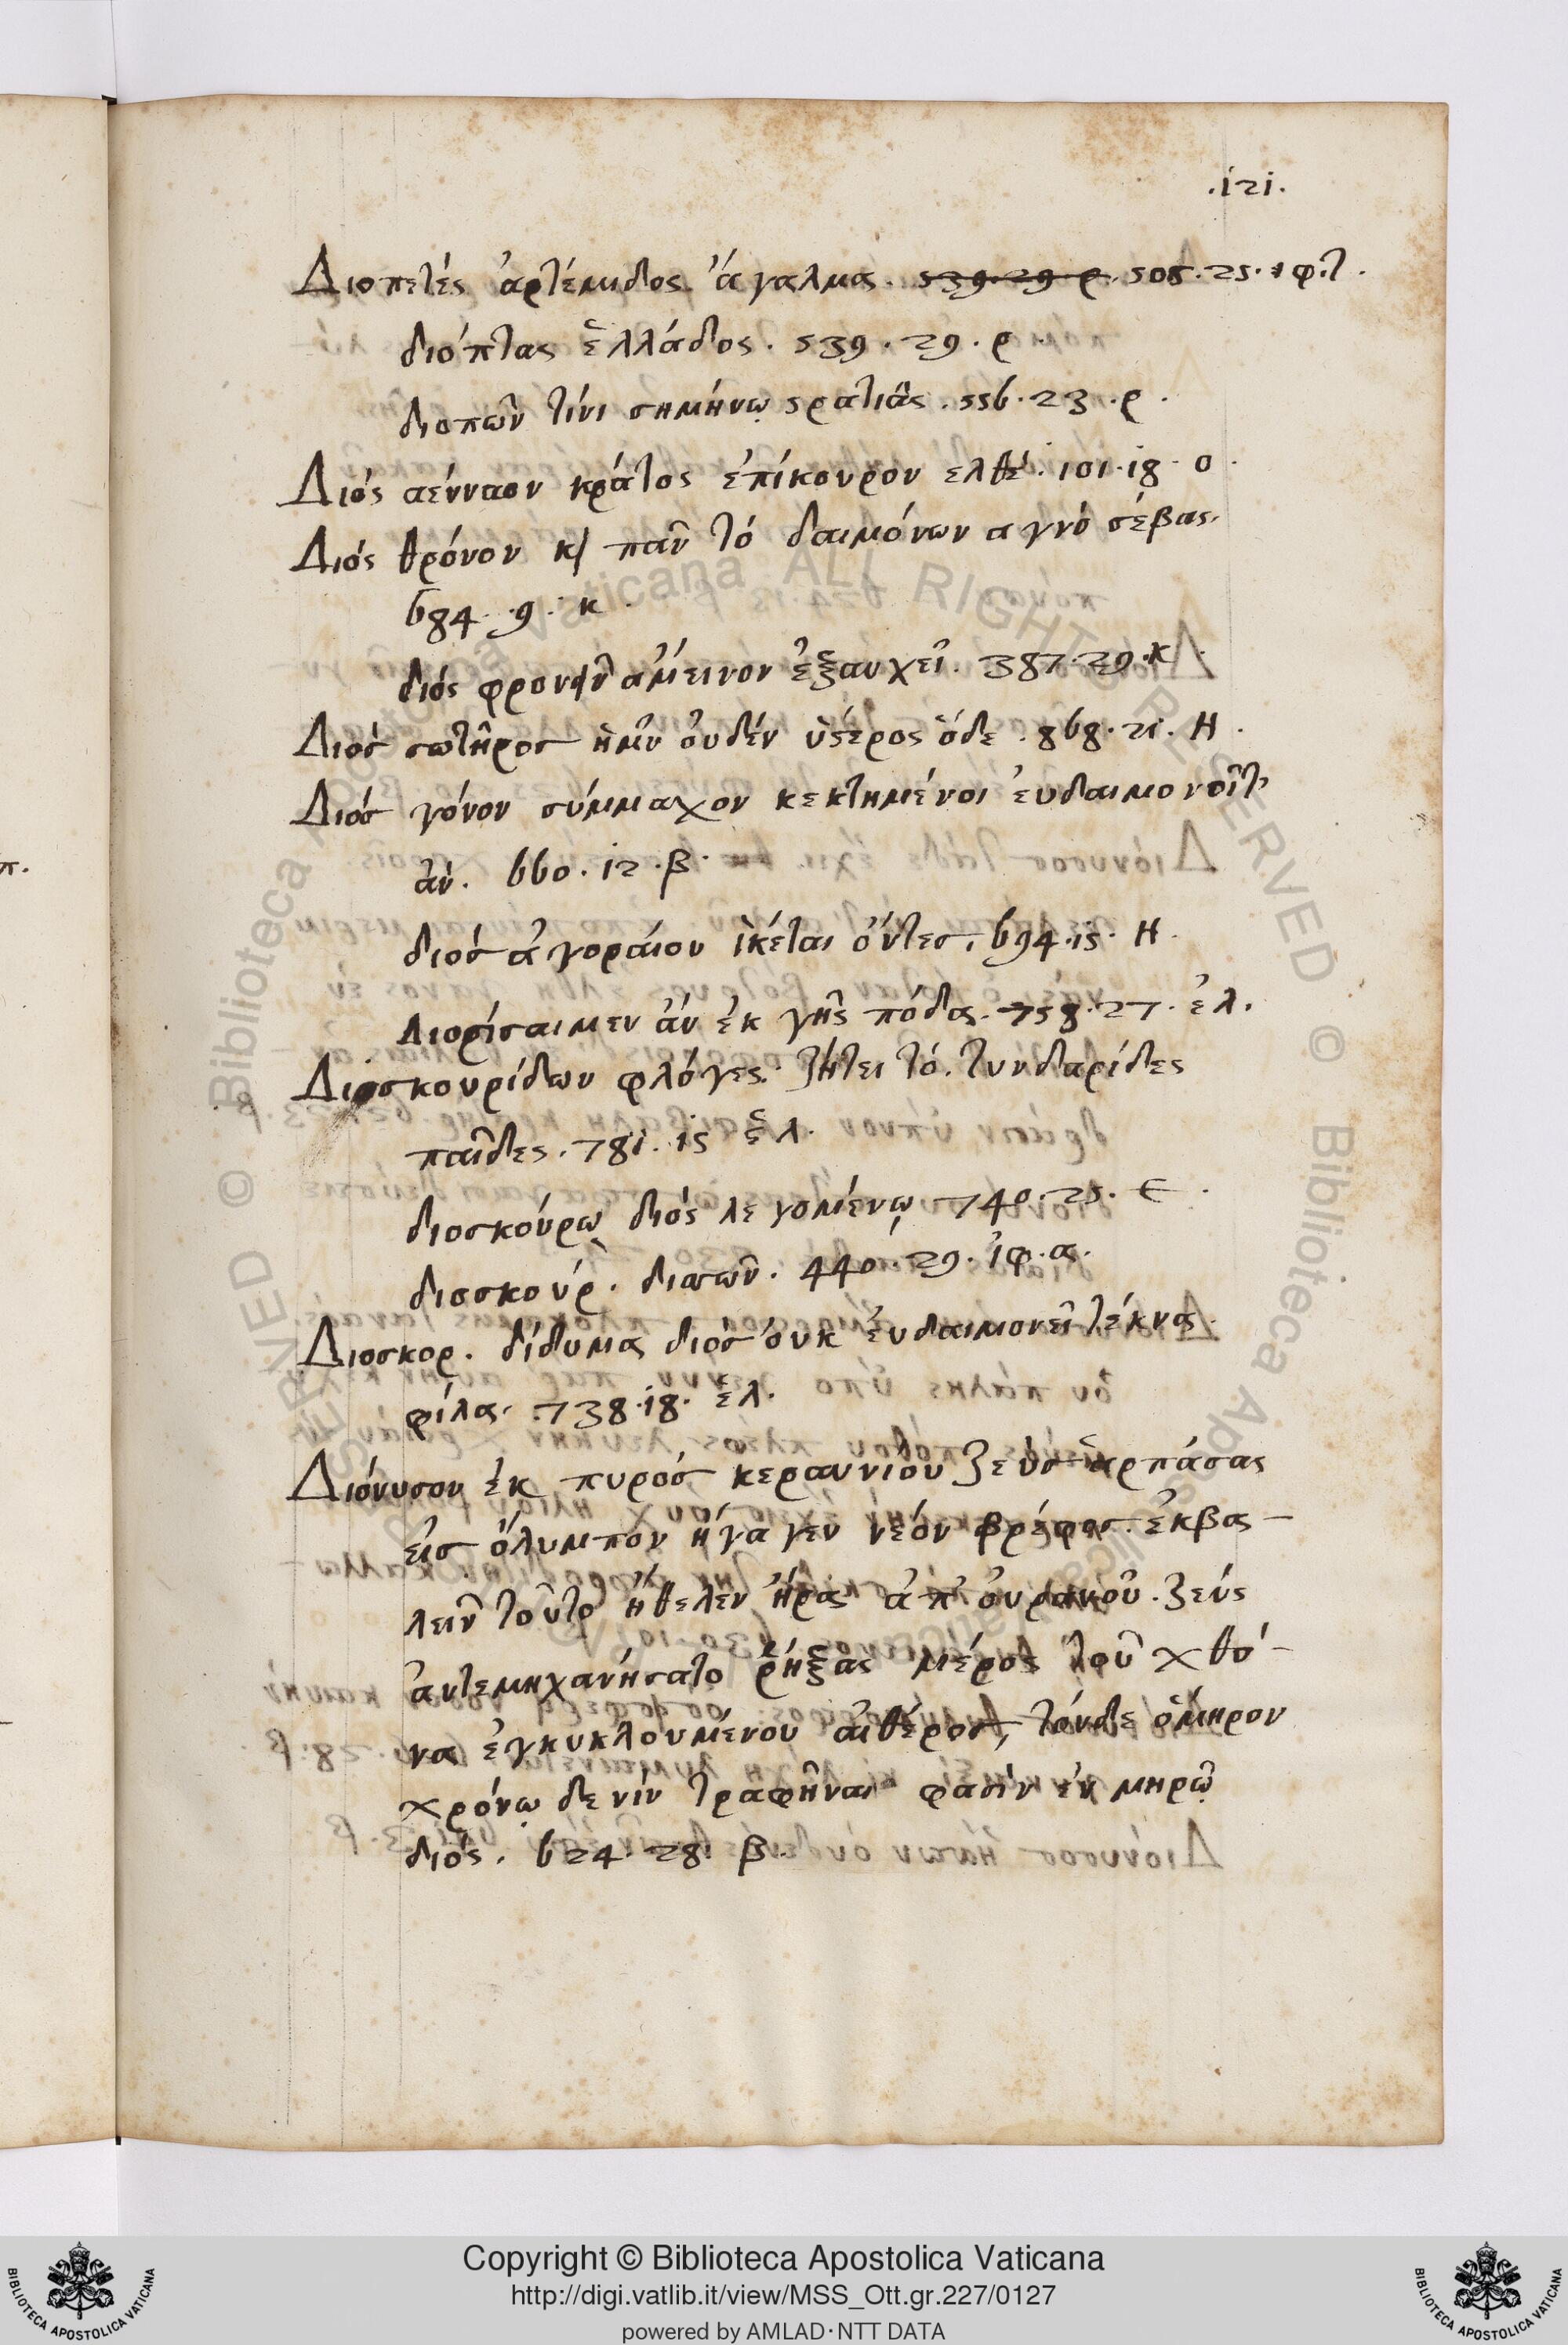 .121.
Διοπετές ἀρτέμιδος ἄγαλμα. 539.29.ρ. 508.25.ιφ.τ.
διόπτας ἑλλάδος. 539.29.ρ
διοπῶν τίνι σημήνῳ ϛρατιᾶς. 556.23.ρ.
Διός αένναον κράτος ἐπίκουρον ελθέ. 101.18.ο.
Διός θρόνον κ/ πᾶν τό δαιμόνων αγνό σέβας.
684.9.κ.
διός φρονεῖν ἀμεινον ἐξαυχεῖ. 387.29.κ.
Διός σωτῆρος ἡμῖν ὀυδέν ὑϛερος ὅδε. 868.21.Η.
Διός γόνον σύμμαχον κεκτημένοι ἐυδαιμονοῖτ'
ἀν. 660.12.β.
διός ἀγοράιου ἱκέται ὄντες. 694.15.Η.
Διορίσαιμεν ἄν ἐκ γῆς πόδα. 758.27.ἑλ.
Διοσκουρίδων φλόγες. ζήτει τό. τυνδαρίδες
παῖδες. 781.15 ἑλ.
διοσκούρῳ διός λεγομένῳ 740.25.ε.
διοσκούρ. διασῶν. 440.29.ἰφ.α.
Διοσκορ. δίδυμα διός ὀυκ ἐυδαιμονεῖ τέκνα
φίλα. 738.18.ἑλ.
Διόνυσον ἐκ πυρός κεραυνίου Ζεύς ἁρπάσας
εἰς ὄλυμπον ἤγαγεν νεόν βρέφος. ἐκβα-
λεῖν τοῦτο ἤθελεν ἥρα ἀπ' ὀυρανοῦ. Ζεύς
ἀντεμηχανήσατο ῥήξας μέρος τοῦ χθό-
να ἐγκυκλουμένου αἰθέρος, τόνδε ὅμηρον
χρόνῳ δε νίν τραφῆναι φασίν ἐν μηρῷ
διός. 624.28.β.
π.
Copyright © Biblioteca Apostolica Vaticana
http://digi.vatlib.it/view/MSS_Ott.gr.227/0127
powered by AMLAD·NTT DATA